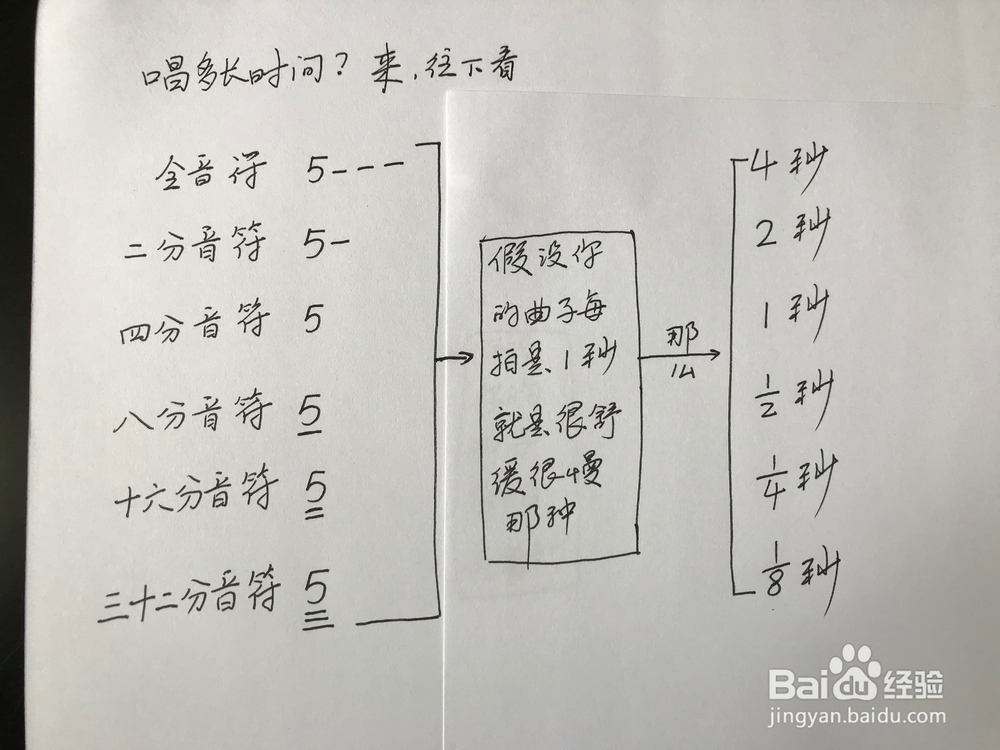 唱多长时间？来，往下看
全音符 5---
二分音符 5-
四分音符 5
八分音符 5
十六分音符 5
三十二分音符 5
假设你
的曲子每
拍是1秒
就是很舒
缓很慢
那种
那
么
4秒
2秒
1秒
1/2秒
1/4秒
1/8秒
Baidu经验
jingyan.baidu.com